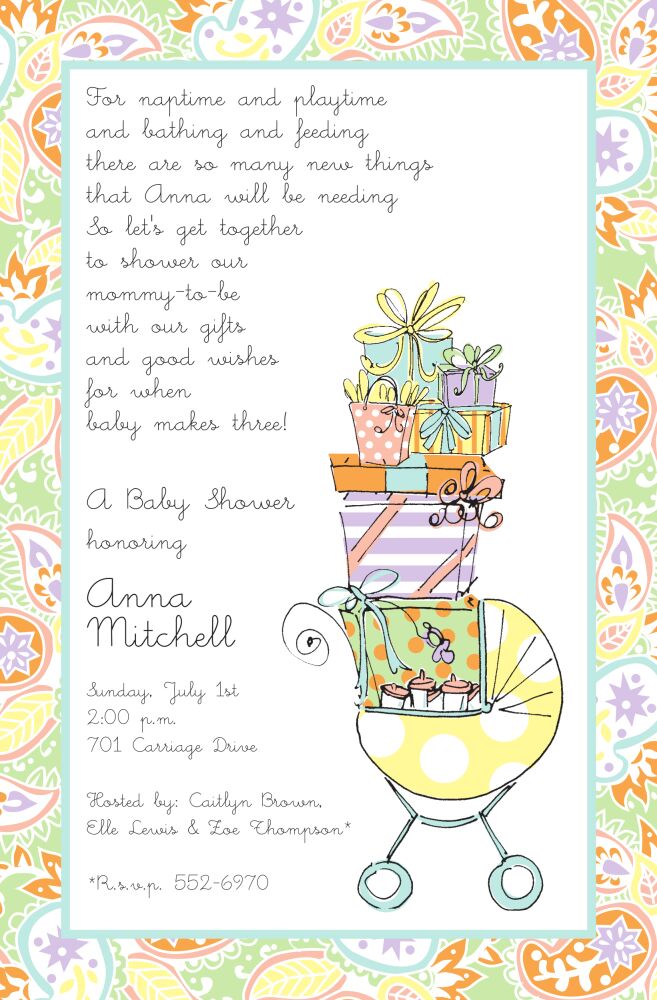 For naptime and playtime
and bathing and feeding
there are so many new things
that Anna will be needing
So let's get together
to shower our
mommy-to-be
with our gifts
and good wishes
for when
baby makes three!
A Baby Shower
honoring
Anna
Mitchell
Sunday, July 1st
2:00 p.m.
701 Carriage Drive
Hosted by: Caitlyn Brown,
Elle Lewis & Zoe Thompson*
*R.s.v.p. 552-6970